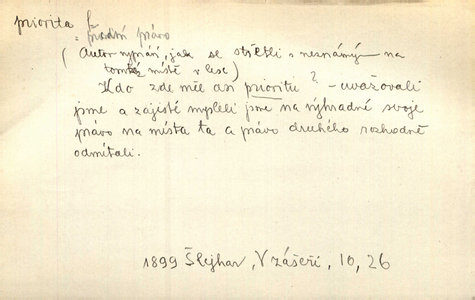 priorita f.
= přední právo
(Autor vypráví, jak se střetli s neznámým na
tomtéž místě v lese)
Kdo zde měl asi prioritu? - uvažovali
jsme a zajisté mysleli jsme na výhradné svoje
právo na místa ta a právo druhého rozhodně
odmítali.
1899 Šlejhar, V zášeří, 10, 26